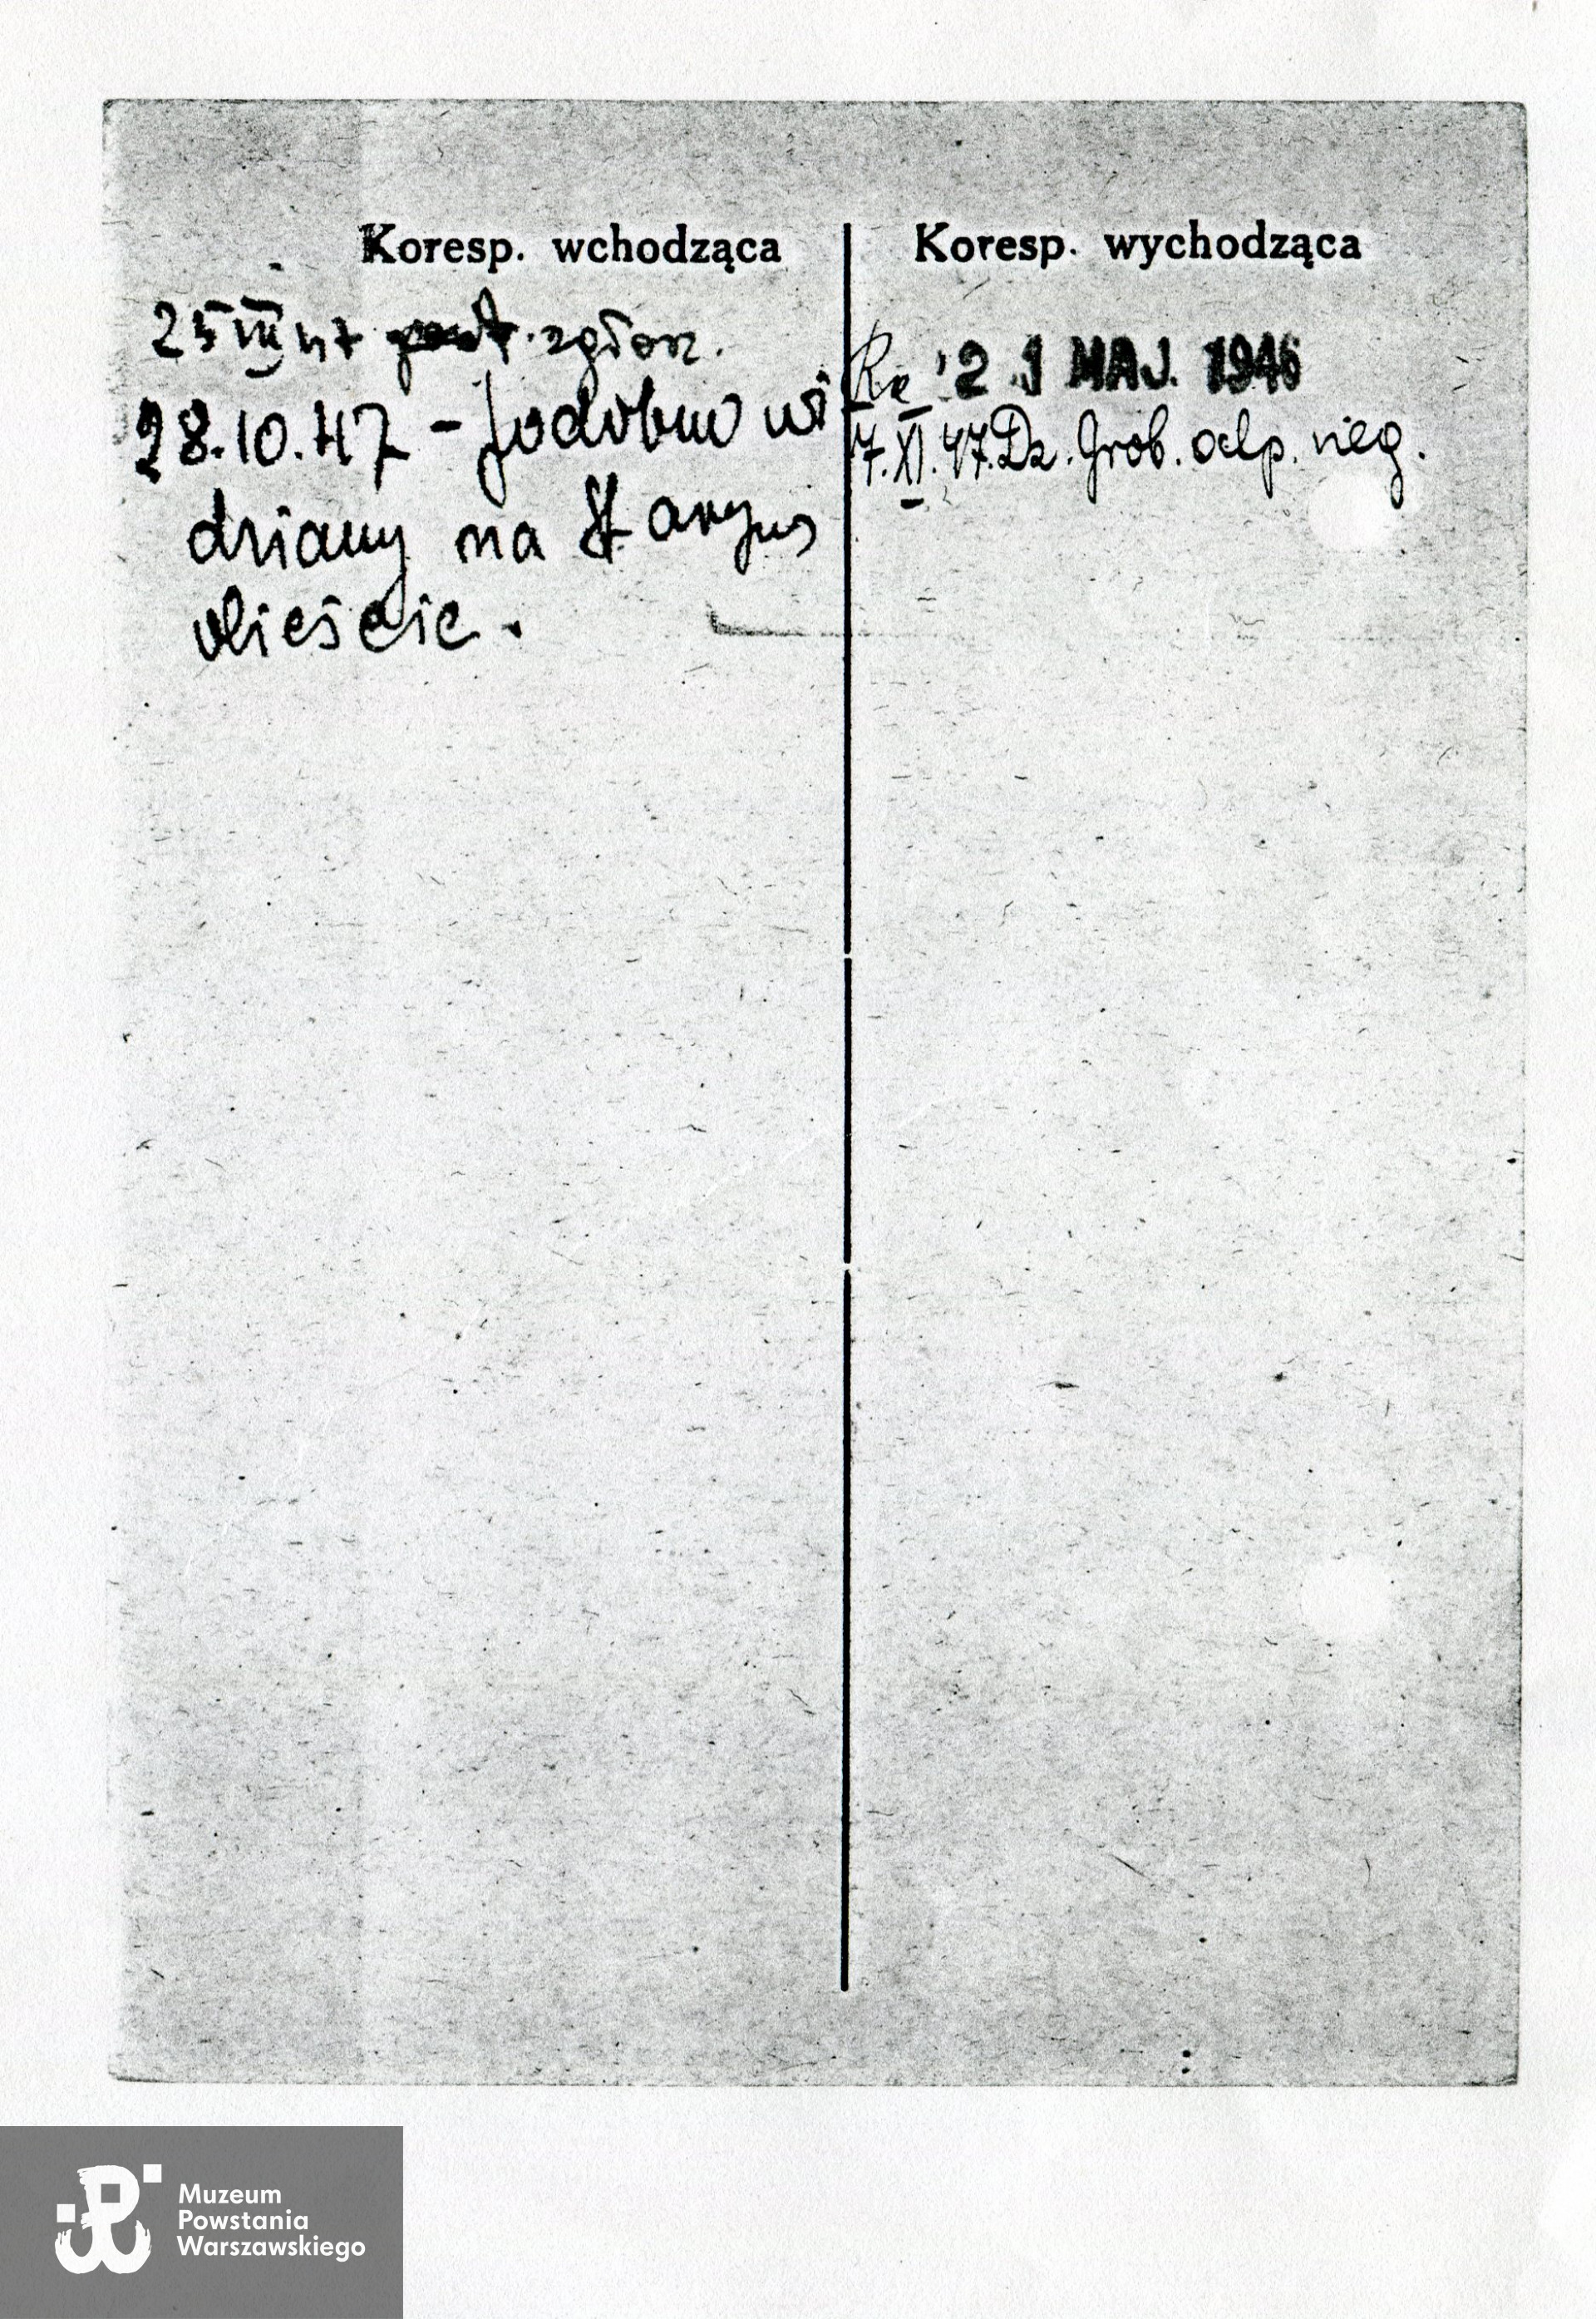 Koresp. wchodząca
25 III 47 zgłosz.
28.10.47 - podobno wi
dziany na Starym
Mieście.
Koresp. wychodząca
21 MAJ. 1946
7.XI.47. Dz. Grob. odp. neg.
Muzeum
Powstania
Warszawskiego